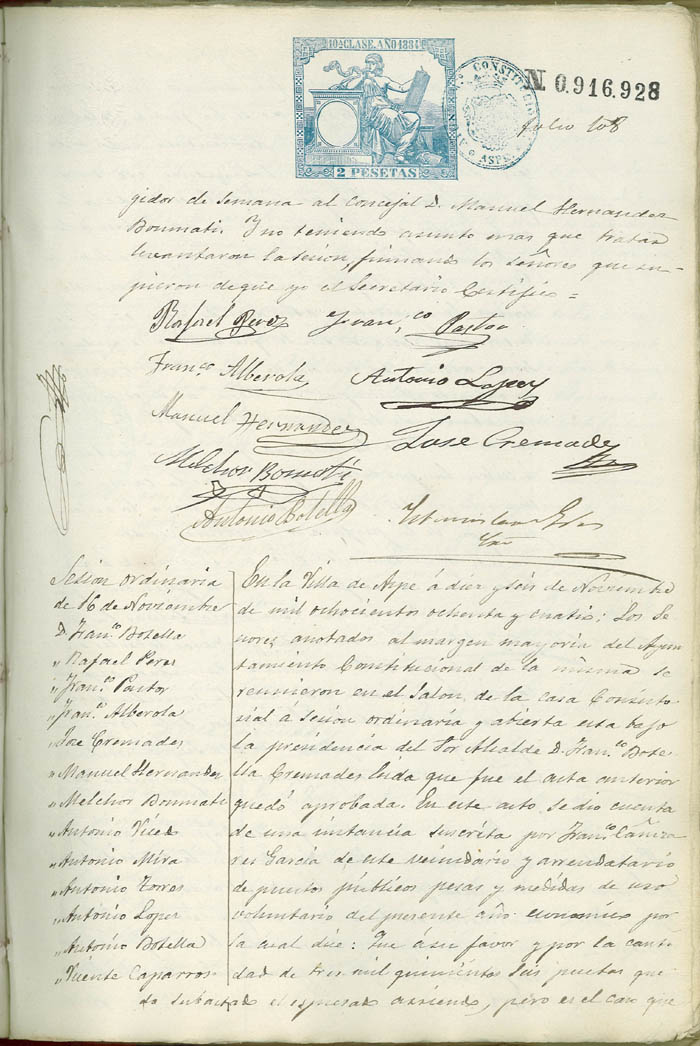 10ª CLASE. AÑO 1884
2 PESETAS
CONSTITUCIO
ASPE
N 0.916.928
folio 108
gidor de semana al concejal D. Manuel Hernandez
Boumati. Y no teniendo asunto mas que tratar
levantaron la sesion, firmando los señores que su-
pieron de que yo el Secretario Certifico =
Rafael Perez Franco Pastor
Franco Alberola Antonio Lopez
Manuel Hernandez Jose Cremades
Melchor Bonmati
Antonio Botella
Srio
Sesion ordinaria
de 16 de Noviembre
D. Franco Botella
" Rafael Peres
" Franco Pastor
" Franco Alberola
" Jose Cremades
" Manuel Hernandez
" Melchor Bonmati
" Antonio Vicedo
" Antonio Mira
" Antonio Torres
" Antonio Lopez
" Antonio Botella
" Vicente Caparros
En la Villa de Aspe á diez y seis de Noviembre
de mil ochocientos ochenta y cuatro; Los Se-
ñores anotados al margen mayoria del Ayun-
tamiento Constitucional de la misma se
reunieron en el Salon de la casa Consisto-
rial á sesion ordinaria y abierta esta bajo
la presidencia del Sor Alcalde D. Franco Bote-
lla Cremades leida que fue el acta anterior
quedó aprobada. En este acto se dio cuenta
de una instancia suscrita por Franco Cañiza
res Garcia de este vecindario y arrendatario
de puestos públicos pesas y medidas de uso
voluntario del presente año economico por
la cual dice: Que á su favor y por la canti-
dad de tres mil quinientas seis pesetas que-
do subastado el espresado arriendo, pero es el caso que